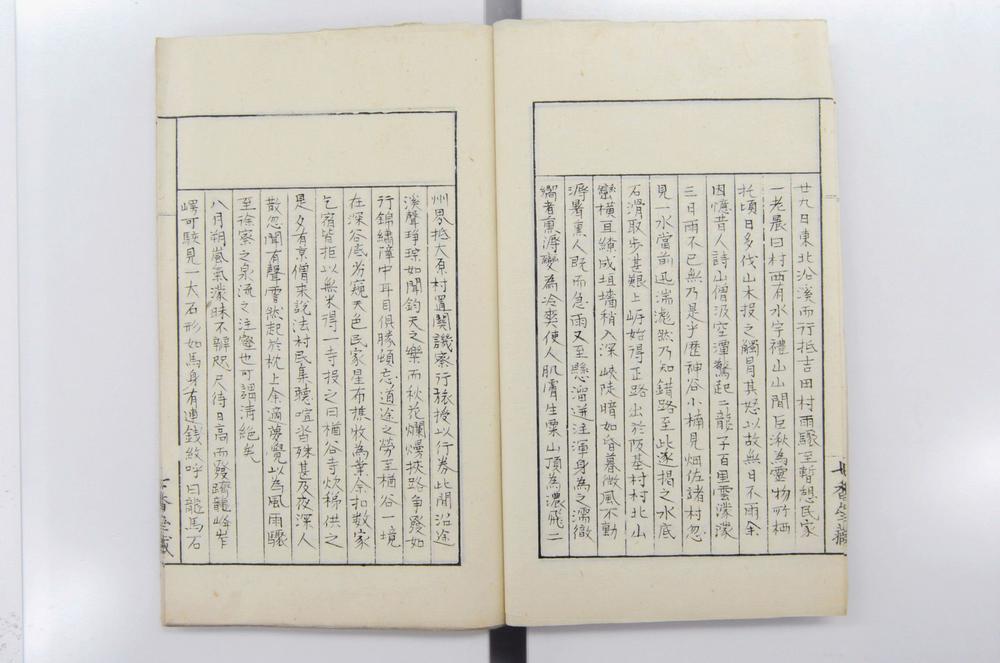 廿九日東北沿溪而行抵吉田村雨驟至暫憩民家
一老農曰村西有水字禮山山間巨湫為靈物所栖
托頃日多伐山木投之觸冒其怒以故無日不雨余
因憶昔人詩山僧汲空潭驚起二龍子百里雲濛濛
三日雨不已無乃是乎歷神谷小楠見畑佐諸村忽
見一水當前迅湍滮然乃知錯路至此遂揭之水底
石滑取步甚艱上岸始得正路出於阪基村村北山
巒橫亙繚成垣墻稍入深峽陡暗如昏暮微風不動
溽暑熏人既而急雨又至懸溜迸注渾身為之濡徹
曏者熏溽變為冷爽使人肌膚生栗山頂為濃飛二
州界抵大原村置關譏察行旅授以行券此間沿途
溪聲琤琮如聞鈞天之樂而秋花爛熳挾路爭發如
行錦繡障中耳目俱勝頓忘道途之勞至楢谷一境
在深谷底旁窺天色民家星布樵牧為業余扣數家
乞宿皆拒以無米得一寺投之曰楢谷寺炊稊供之
是夕有京僧来說法村民集聽喧沓殊甚及夜深人
散忽聞有聲霅然起於枕上余適夢覺以為風雨驟
至徐察之泉流之注壑也可謂清絕矣
八月朔嵐氣濛昧不辨咫尺待日高而發躋龍峰岞
㟧可駭見一大石形如馬身有連錢紋呼曰龍馬石